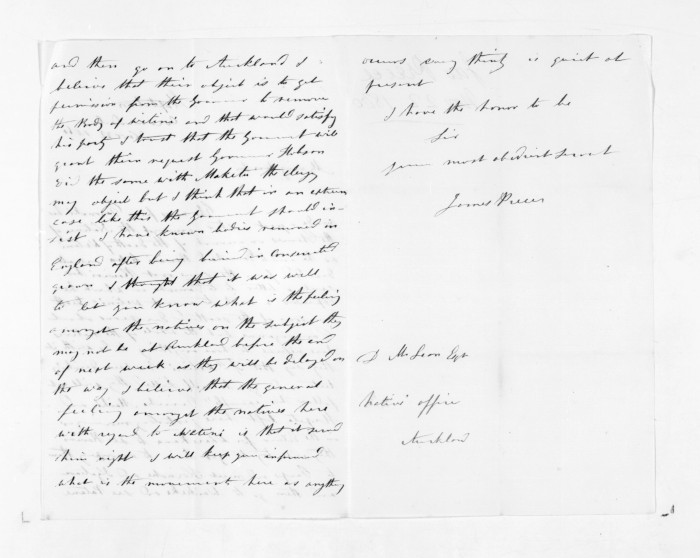 and then go on to Auckland I
believe that their object is to get
permission from the Governor to remove
the Body of and that would satisfy
his party I trust that the Goverment will
grant their request Governor Hobson
did the same with Maketu the clergy
may object but I think that in an extrem
case like this the Goverment should in-
sist I have known bodies removed in
England after being buried in Consecrated
I thought that it was well
to let you know what is the feeling
amongst the natives on the subject they
may not be at Auckland before the end
of next week as they will be delayed on
the way I believe that the general
feeling amongst the natives here
with regard to is that it
him right I will keep you informed
what is the movement here as anything
occurs every thing is quiet at
present
I have the honor to be
Sir
your most obedient Servant
James Preece
D McLean Esqr
Native office
Auckland